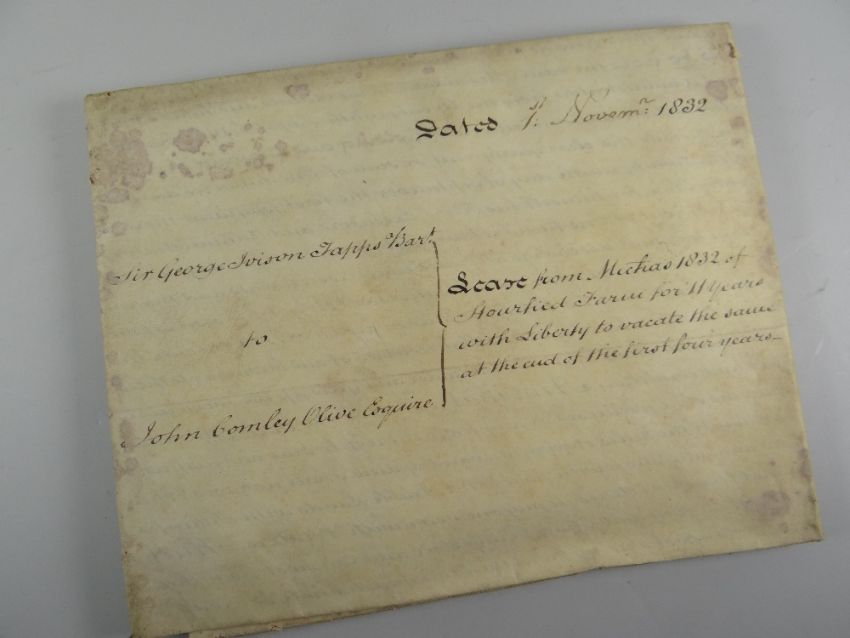 Dated 1st Novemr. 1832
Sir George Ivison Tapps Bart.
to
John Comley Olive Esquire
Lease from Michas 1832 of
Stourfied Farm for 11 years
with Liberty to vacate the same
at the end of the first four years